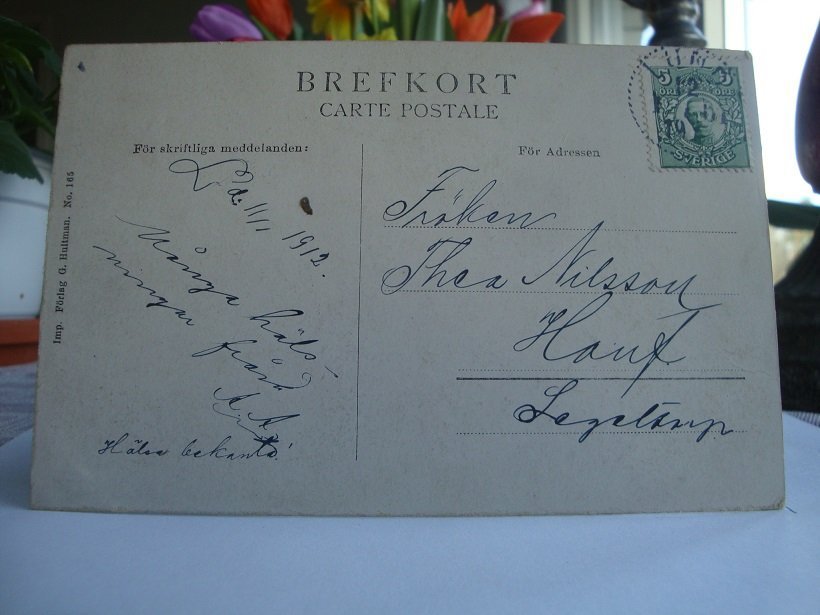 BREFKORT
CARTE POSTALE
För skriftliga meddelanden:
För Adressen
5 5
ÖRE ÖRE
SVERIGE
Imp. Förlag G. Hultman. No. 165
L. d. 11/1 1912.
Många häls-
ningar från
A. A.
Hälsa bekanta!
Fröken
Thea Nilsson